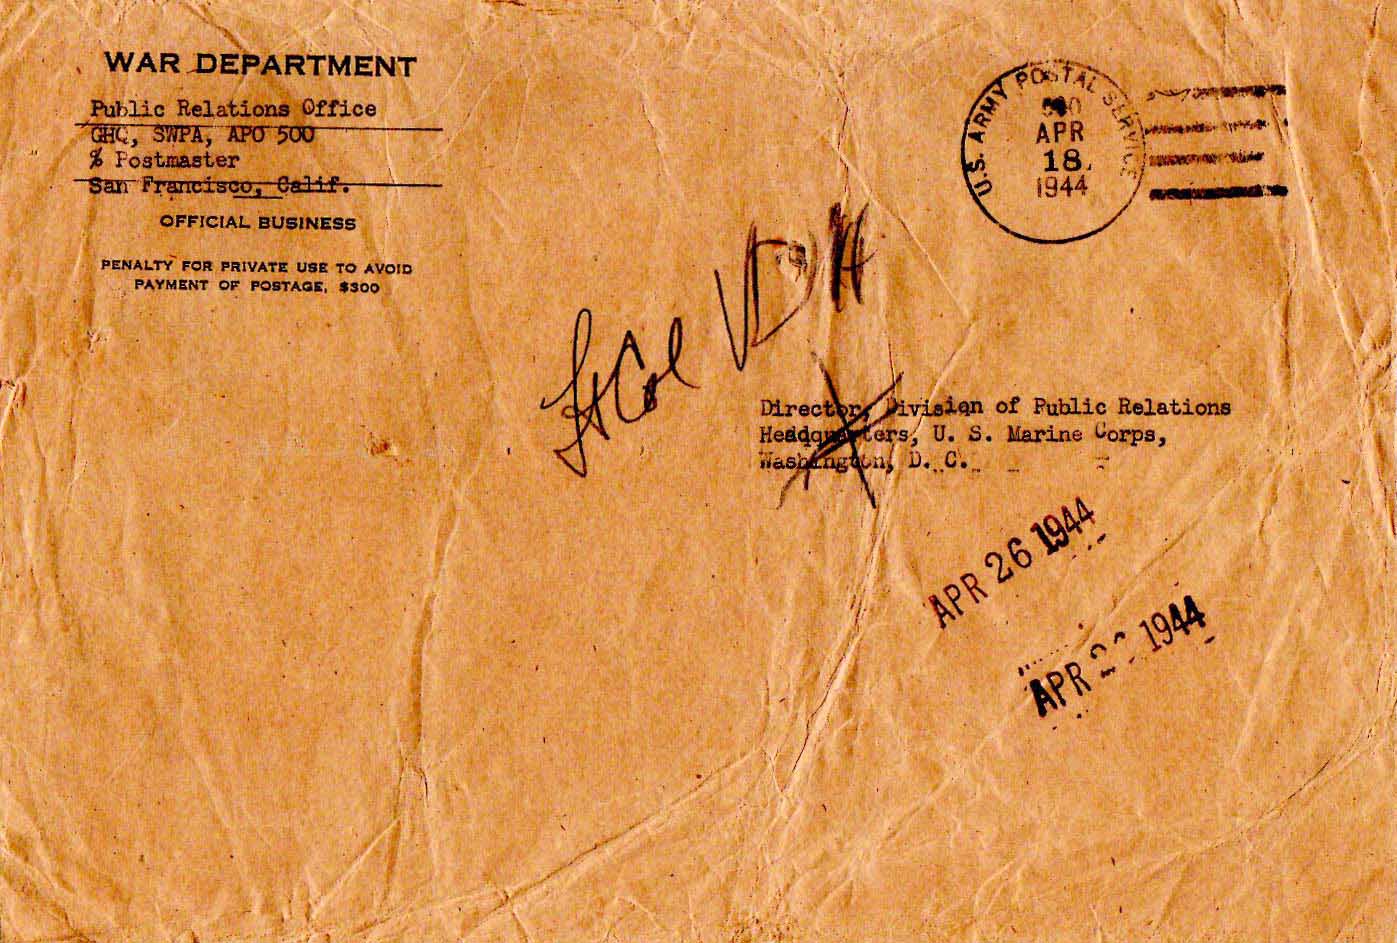 WAR DEPARTMENT
Public Relations Office
GHQ, SWPA, APO 500
% Postmaster
San Francisco, Calif.
OFFICIAL BUSINESS
PENALTY FOR PRIVATE USE TO AVOID
PAYMENT OF POSTAGE, $300
U.S. ARMY POSTAL SERVICE
APR
18
1944
Lt Col
Director, Division of Public Relations
Headquarters, U. S. Marine Corps,
Washington, D. C.
APR 26 1944
APR 1944